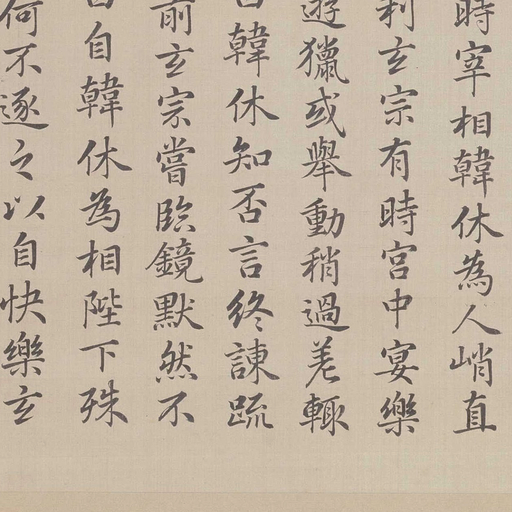 時宰相韓休為人峭直
利玄宗有時宮中宴樂
遊獵或舉動稍過差輒
韓休知否言終諫疏
前玄宗嘗臨鏡默然不
自韓休為相陛下殊
何不逐之以自快樂玄